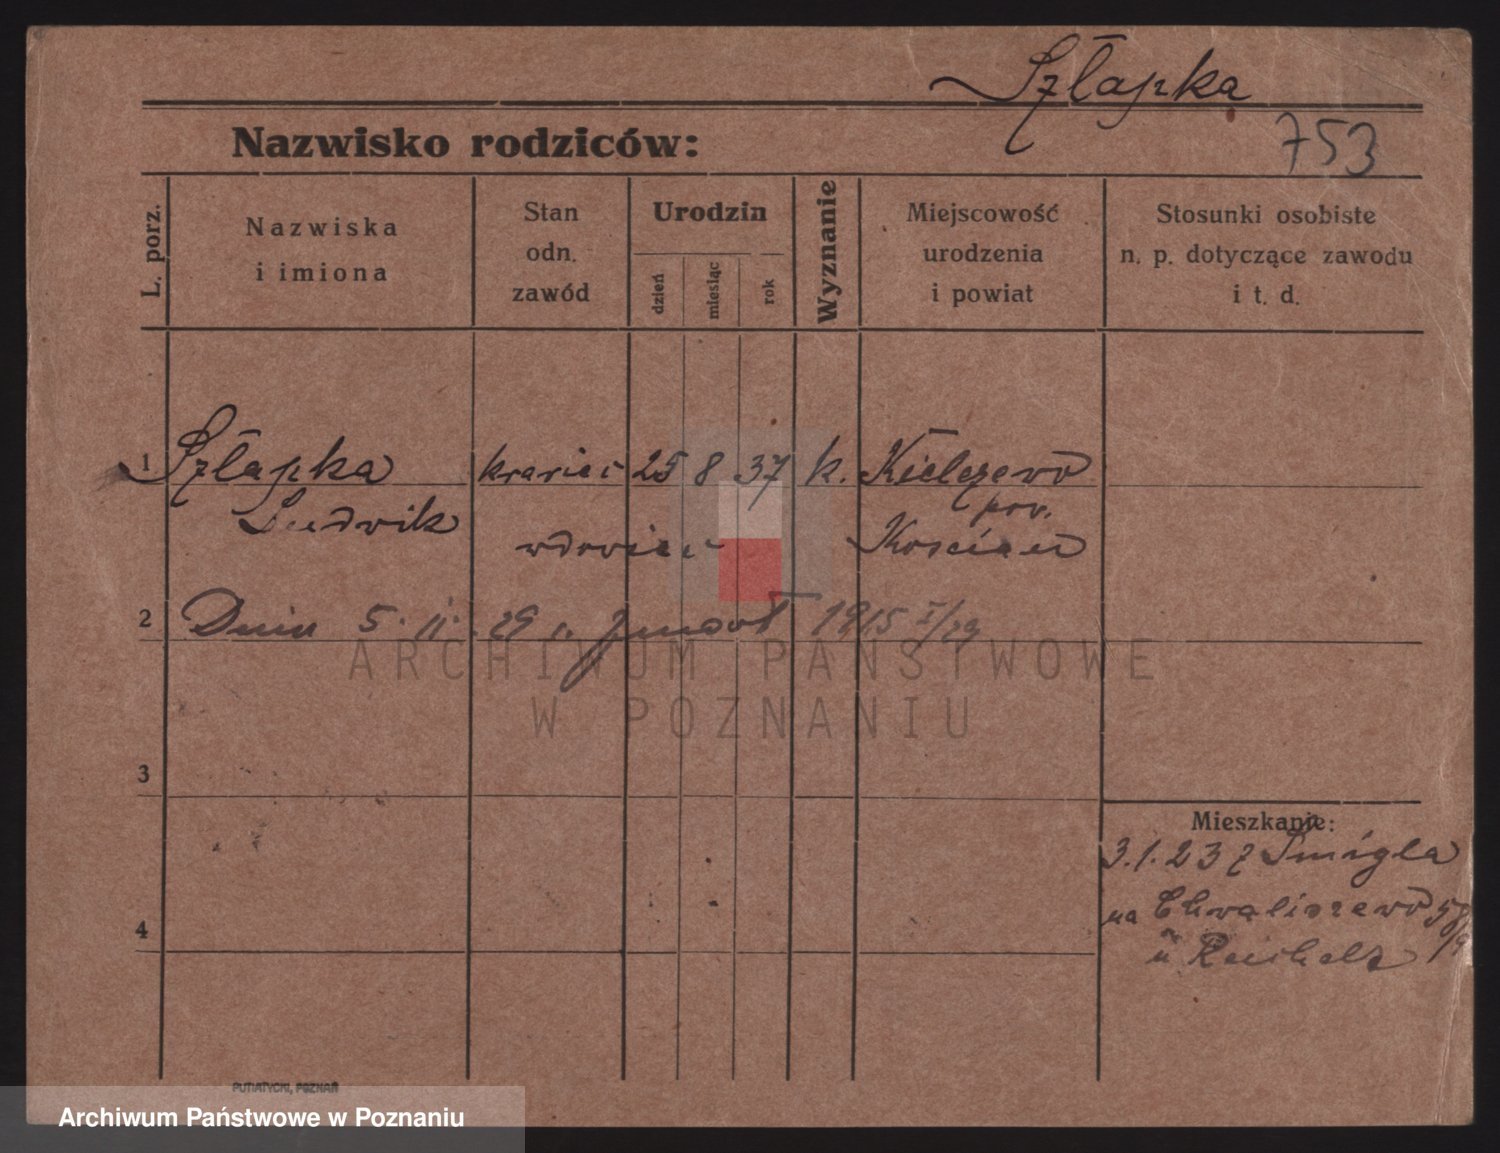 Szłapka
753
Nazwisko rodziców:
L. porz.
Nazwiska
i imiona
Stan
odn.
zawód
Urodzin
dzień
miesiąc
rok
Wyznanie
Miejscowość
urodzenia
i powiat
Stosunki osobiste
n. p. dotyczące zawodu
i t. d.
1 Szłapka krawiec 25 8 37 k. Kiełczewo
Ludwik pow.
wdowiec Kościan
2 Dnia 5. 11. 29 r. zmarł 1915 I/29
ARCHIWUM PAŃSTWOWE
W POZNANIU
3
Mieszkanie:
3.1.23 z Śmigla
na Chwaliszewo 58/9
4
u
PUTIATYCKI, POZNAŃ
Archiwum Państwowe w Poznaniu